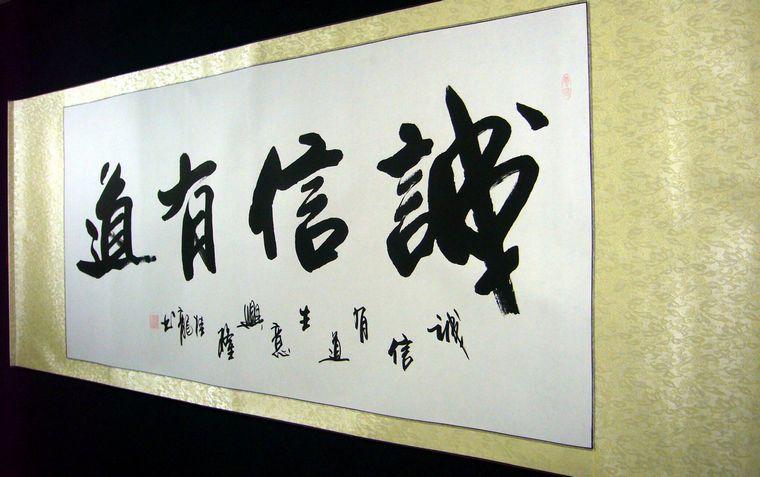 誠信有道
誠信有道生意興隆
龍书